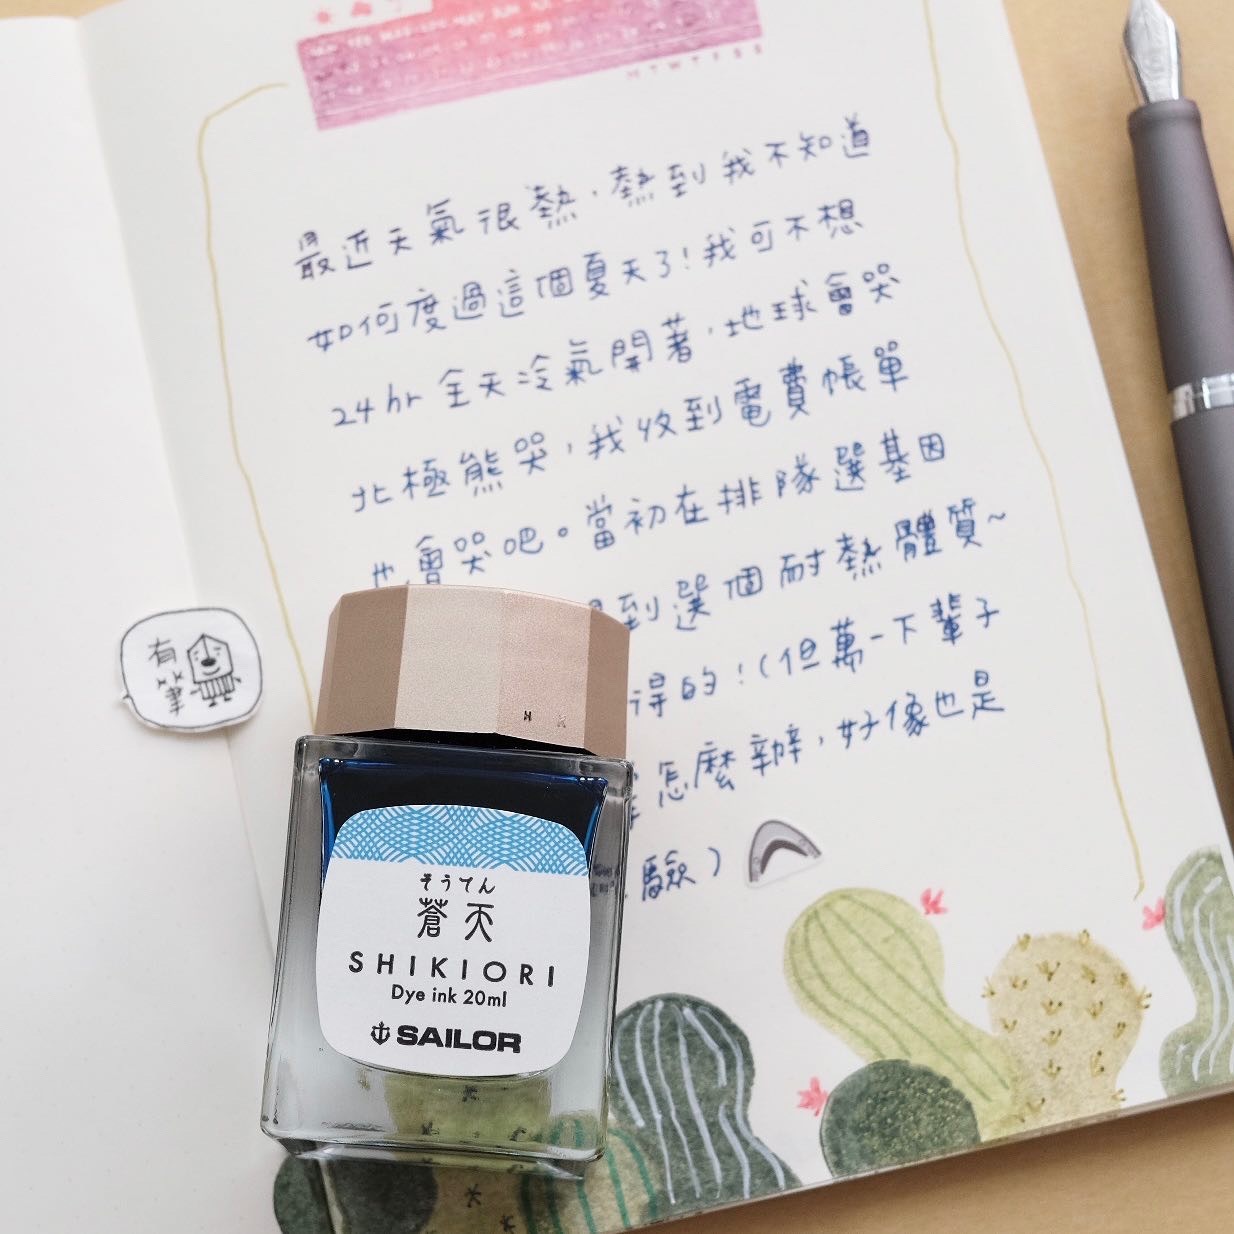 M T W T F S S
最近天氣很熱，熱到我不知道
如何度過這個夏天了！我可不想
24hr全天冷氣開著，地球會哭
北極熊哭，我收到電費帳單
也會哭吧。當初在排隊選基因
到選個耐熱體質~
得的！（但萬一下輩子
怎麼辦，好像也是
驗）
有筆
そうてん
蒼天
SHIKIORI
Dye ink 20ml
SAILOR